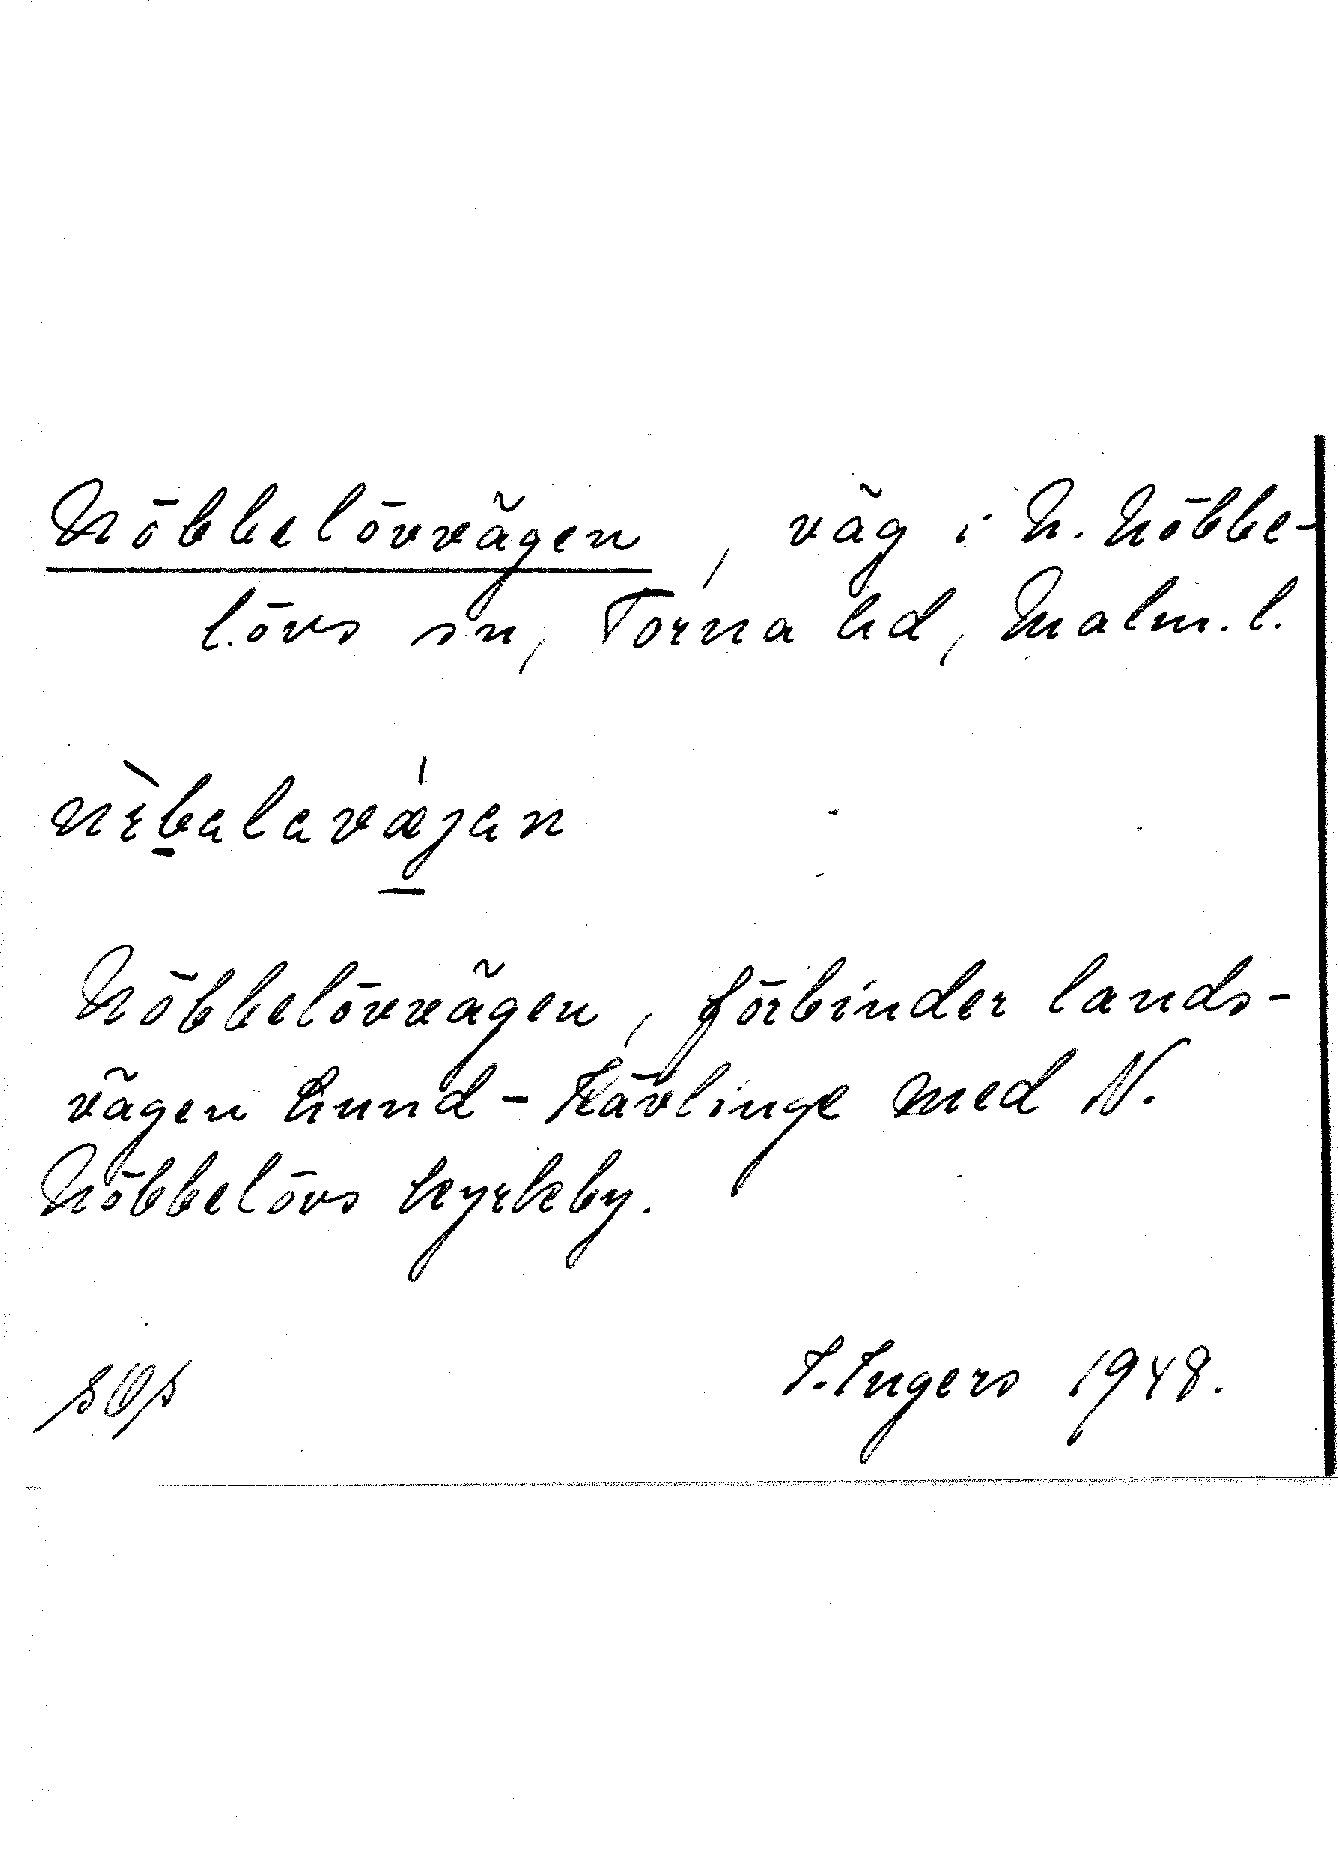 Nöbbelövvägen, väg i N. Nöbbe-
lövs sn, Torna hd, Malm. l.
nèbalaváejan
Nöbbelövvägen, förbinder lands-
vägen Lund - Kävlinge med N.
Nöbbelövs kyrkby.
I. Ingers 1948.